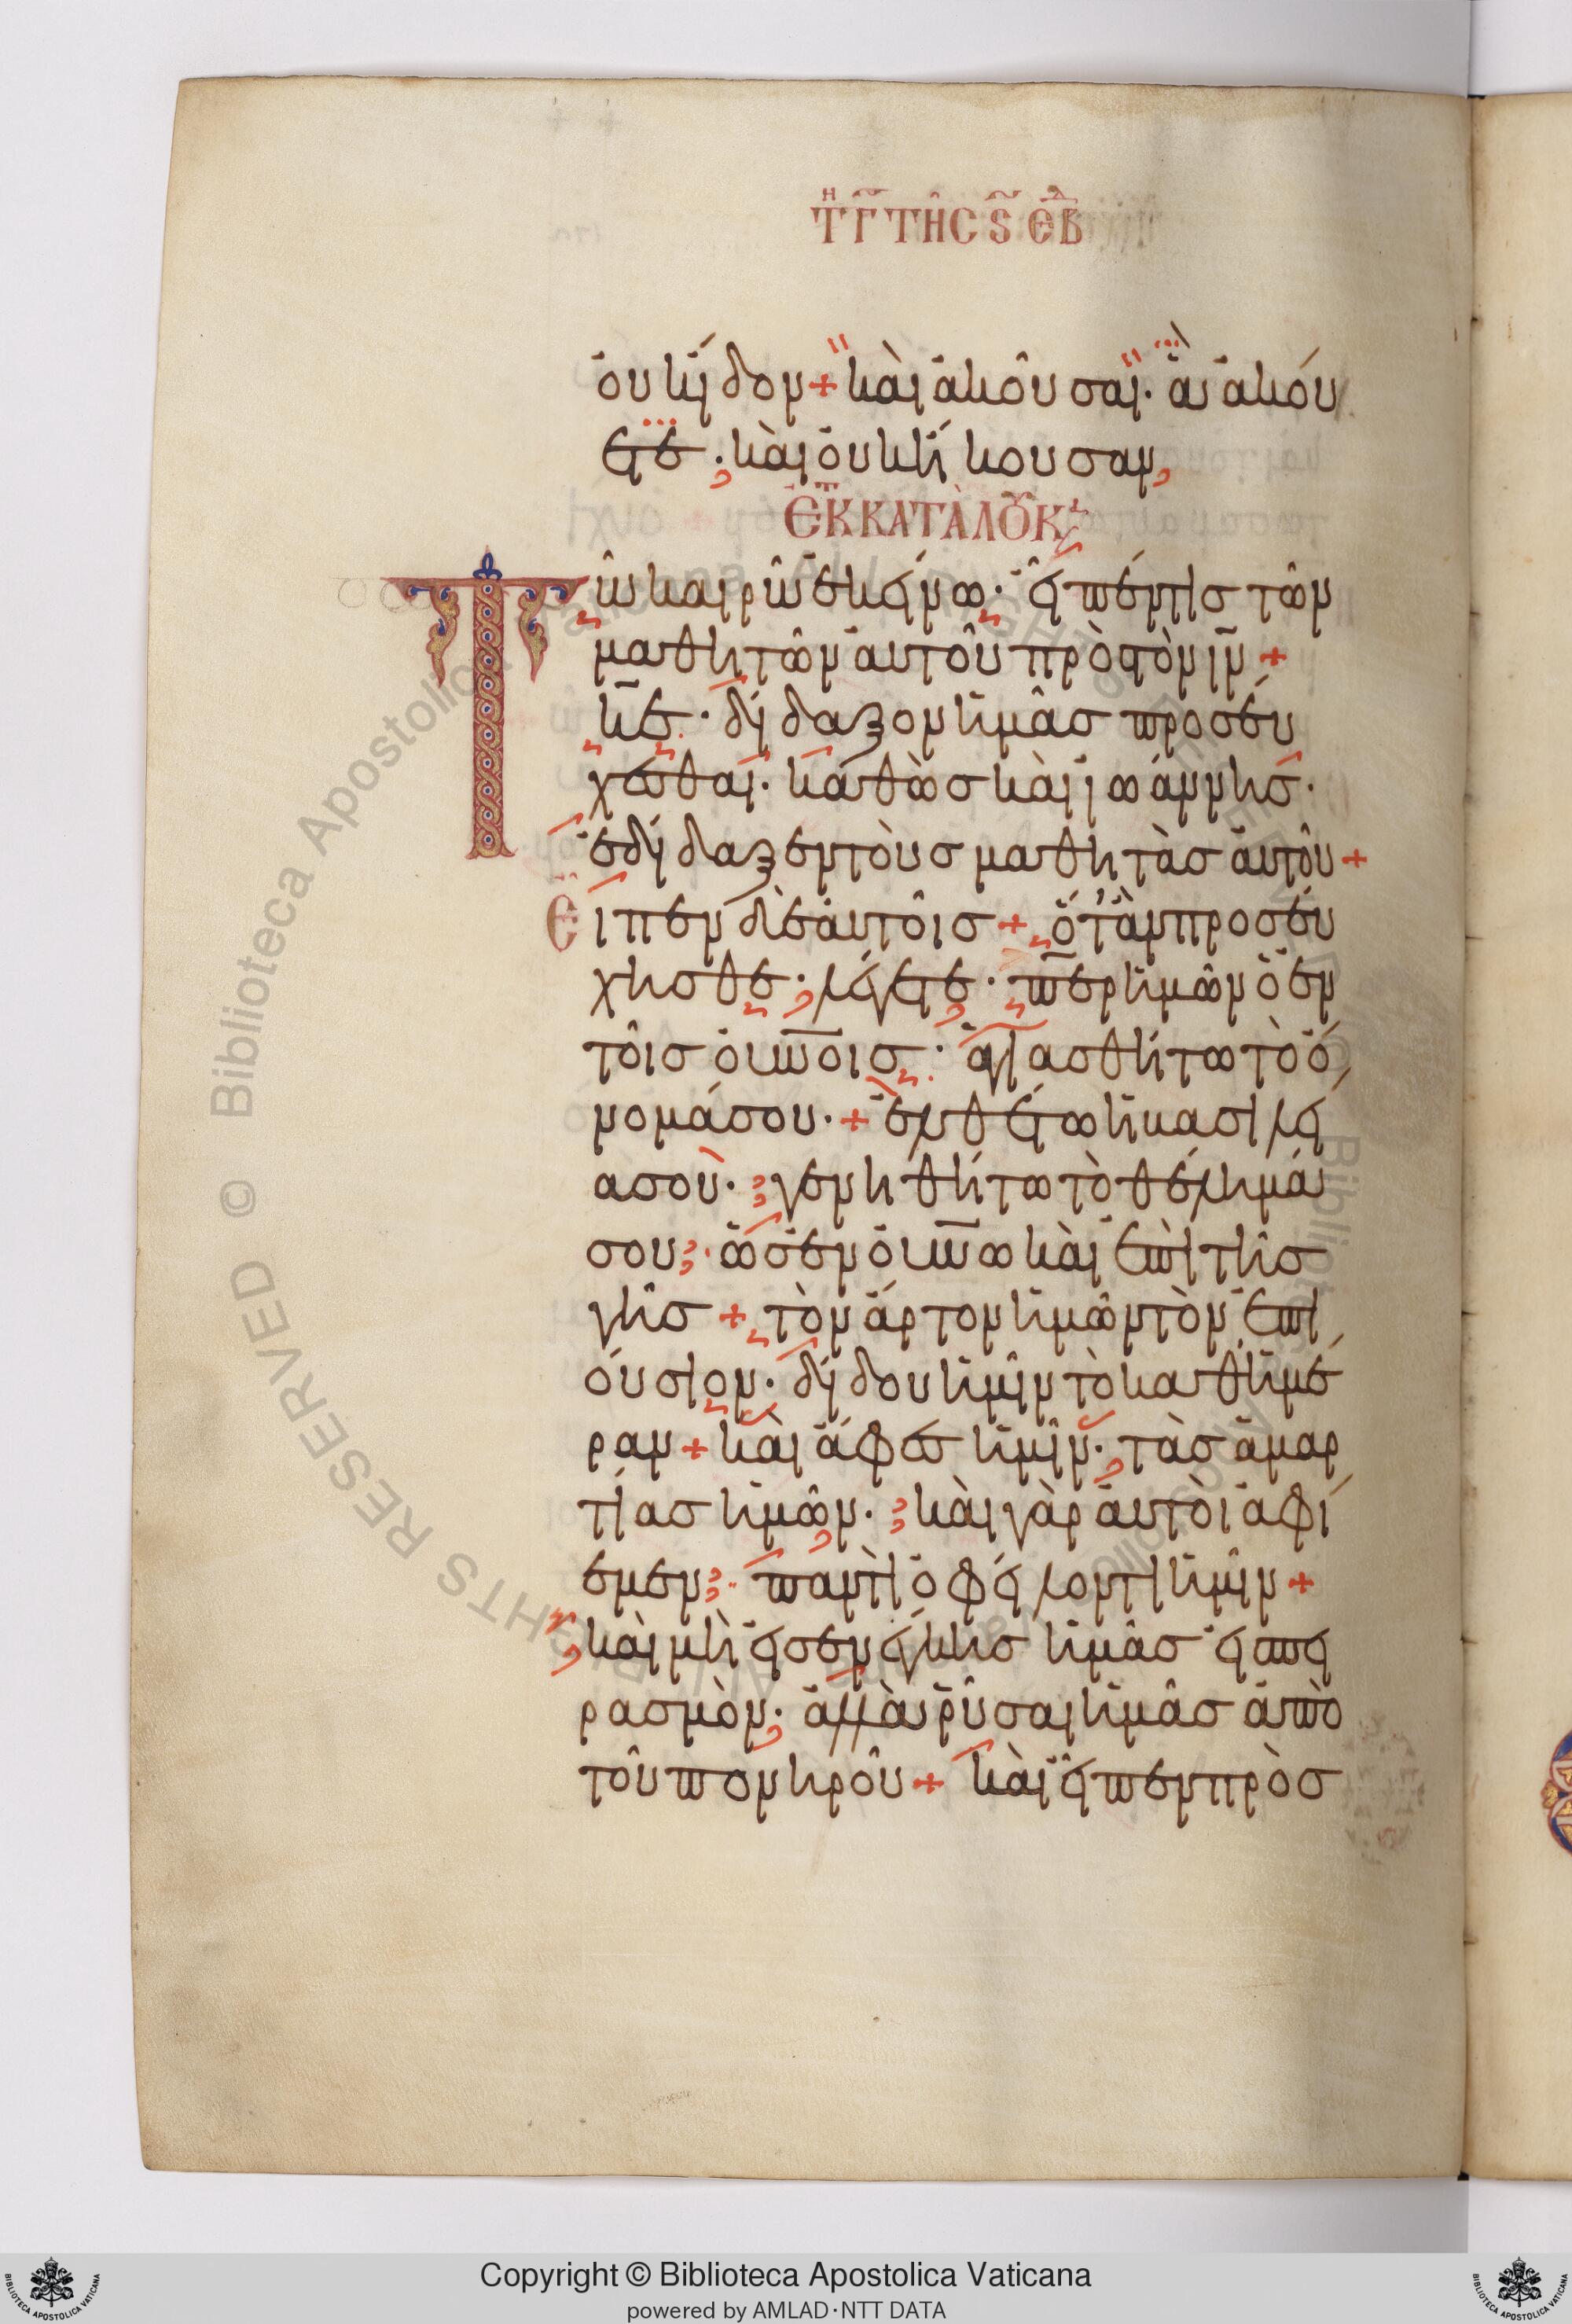 ΤΗ Γ ΤΗΣ Ϛ ΕΒΔ
οὐκ εἶδον + καὶ ἀκοῦσαι· ἃ ἀκού
ετε· καὶ οὐκ ἤκουσαν
ΕΚ ΤΟΥ ΚΑΤΑ ΛΟΥΚ
Τῶ καιρῶ ἐκείνω· εἶπέν τις τῶν
μαθητῶν αὐτοῦ πρὸς τὸν ιν +
κε· δίδαξον ἡμᾶς προσεύ
χεσθαι· καθὼς καὶ ἰωάννης·
ἐδίδαξεν τοὺς μαθητὰς αὐτοῦ +
Εἶπεν δὲ αὐτοῖς + ὅταν προσεύ
χησθε· λέγετε· περ ἡμῶν ὁ ἐν
τοῖς οὐνοις· ἁγιασθήτω τὸ ὄ
νομά σου· + ἐλθέτω ἡ βασιλεί
α σου· γενηθήτω τὸ θέλημά
σου· ὡς ἐν οὐνω καὶ ἐπὶ τῆς
γῆς + τὸν ἄρτον ἡμῶν τὸν ἐπι
ούσιον· δίδου ἡμῖν τὸ καθημέ
ραν + καὶ ἄφες ἡμῖν· τὰς ἁμαρ
τίας ἡμῶν· καὶ γὰρ αὐτοὶ ἀφί
εμεν· παντὶ ὀφείλοντι ἡμῖν +
καὶ μὴ εἰσενέγκης ἡμᾶς εἰς πει
ρασμὸν· ἀλλὰ ῥῦσαι ἡμᾶς ἀπὸ
τοῦ πονηροῦ + καὶ εἶπεν πρὸς
Copyright © Biblioteca Apostolica Vaticana
powered by AMLAD·NTT DATA